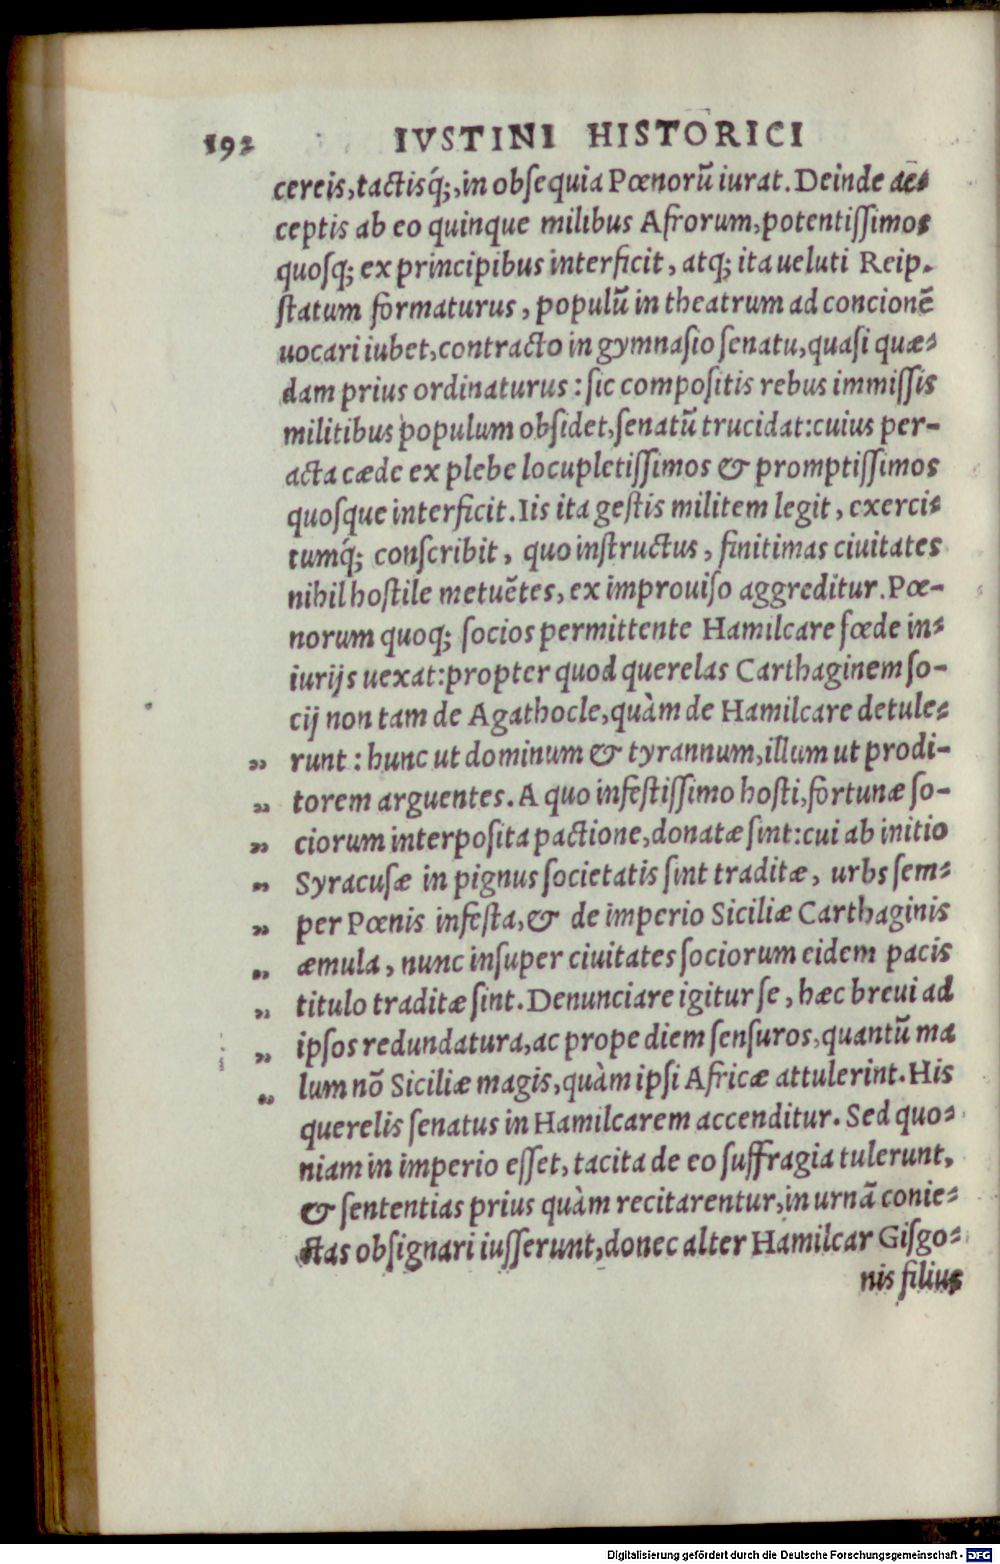 192 IVSTINI HISTORICI
cereis, tactisq́;, in obsequia Pœnorũ iurat. Deinde ac⸗
ceptis ab eo quinque milibus Afrorum, potentissimos
quosq; ex principibus interficit, atq; ita ueluti Reip.
statum formaturus, populũ in theatrum ad concionẽ
uocari iubet, contracto in gymnasio senatu, quasi quæ⸗
dam prius ordinaturus: sic compositis rebus immissis
militibus populum obsidet, senatũ trucidat: cuius per-
acta cæde ex plebe locupletissimos & promptissimos
quosque interficit. Iis ita gestis militem legit, exerci⸗
tumq́; conscribit, quo instructus, finitimas ciuitates
nihil hostile metuẽtes, ex improuiso aggreditur. Pœ-
norum quoq; socios permittente Hamilcare fœde in⸗
iurijs uexat: propter quod querelas Carthaginem so-
cij non tam de Agathocle, quàm de Hamilcare detule⸗
„ runt: hunc ut dominum & tyrannum, illum ut prodi-
„ torem arguentes. A quo infestissimo hosti, fortunæ so-
„ ciorum interposita pactione, donatæ sint: cui ab initio
„ Syracusæ in pignus societatis sint traditæ, urbs sem⸗
„ per Pœnis infesta, & de imperio Siciliæ Carthaginis
„ æmula, nunc insuper ciuitates sociorum eidem pacis
„ titulo traditæ sint. Denunciare igitur se, hæc breui ad
„ ipsos redundatura, ac prope diem sensuros, quantũ ma
„ lum nõ Siciliæ magis, quàm ipsi Africæ attulerint. His
querelis senatus in Hamilcarem accenditur. Sed quo⸗
niam in imperio esset, tacita de eo suffragia tulerunt,
& sententias prius quàm recitarentur, in urnã conie⸗
ctas obsignari iusserunt, donec alter Hamilcar Gisgo⸗
nis filius
Digitalisierung gefördert durch die Deutsche Forschungsgemeinschaft - DFG